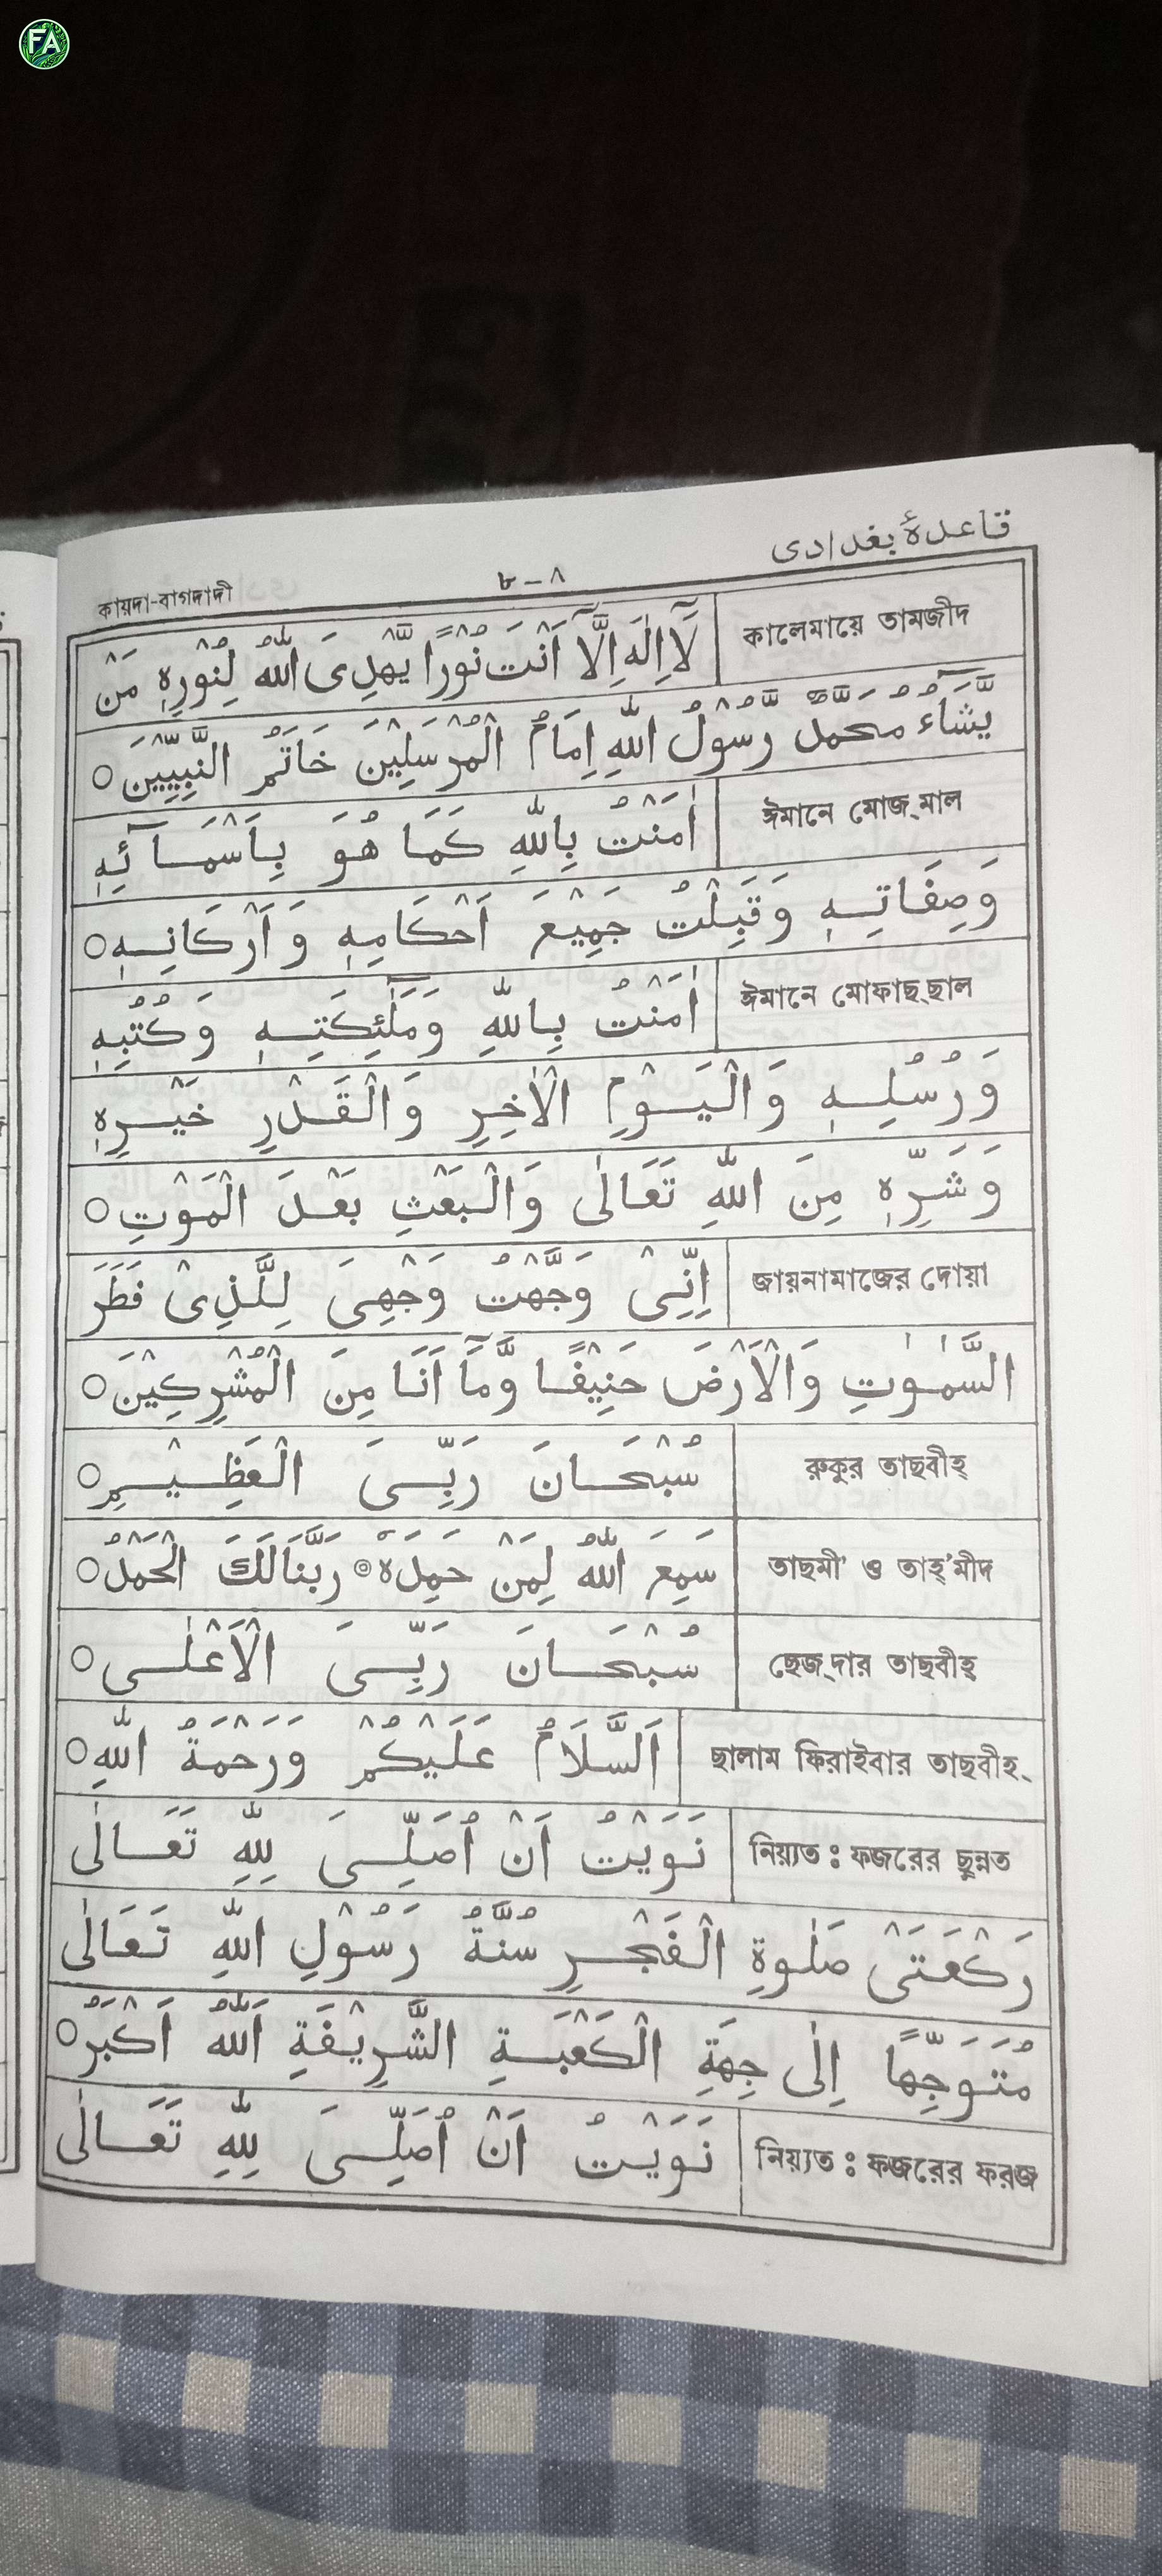 FA
قاعدۂ بغدادی
কায়দা-বাগদাদী ৮ – ٨
কালেমায়ে তামজীদ
لَآ اِلٰهَ اِلَّآ اَنْتَ نُوْرًا يَّهْدِىَ اللّٰهُ لِنُوْرِهٖ مَنْ
يَّشَآءُ مُحَمَّدٌ رَّسُوْلُ اللّٰهِ اِمَامُ الْمُرْسَلِيْنَ خَاتَمُ النَّبِيِّيْنَ ○
ঈমানে মোজ্‌মাল
اٰمَنْتُ بِاللّٰهِ كَمَا هُوَ بِاَسْمَآئِهٖ
وَصِفَاتِهٖ وَقَبِلْتُ جَمِيْعَ اَحْكَامِهٖ وَ اَرْكَانِهٖ ○
ঈমানে মোফাছ্‌ছাল
اٰمَنْتُ بِاللّٰهِ وَمَلٰٓئِكَتِهٖ وَكُتُبِهٖ
وَرُسُلِهٖ وَالْيَوْمِ الْاٰخِرِ وَالْقَدْرِ خَيْرِهٖ
وَشَرِّهٖ مِنَ اللّٰهِ تَعَالٰى وَالْبَعْثِ بَعْدَ الْمَوْتِ ○
জায়নামাজের দোয়া
اِنِّىْ وَجَّهْتُ وَجْهِىَ لِلَّذِىْ فَطَرَ
السَّمٰوٰتِ وَالْاَرْضَ حَنِيْفًا وَّمَآ اَنَا مِنَ الْمُشْرِكِيْنَ ○
রুকুর তাছবীহ্
سُبْحَانَ رَبِّىَ الْعَظِيْمِ ○
তাছমী' ও তাহ্'মীদ
سَمِعَ اللّٰهُ لِمَنْ حَمِدَهْ ◎ رَبَّنَا لَكَ الْحَمْدُ ○
ছেজ্‌দার তাছবীহ্
سُبْحَانَ رَبِّىَ الْاَعْلٰى ○
ছালাম ফিরাইবার তাছবীহ্
اَلسَّلَامُ عَلَيْكُمْ وَرَحْمَةُ اللّٰهِ ○
নিয়্যত : ফজরের ছুন্নত
نَوَيْتُ اَنْ اُصَلِّىَ لِلّٰهِ تَعَالٰى
رَكْعَتَىْ صَلٰوةِ الْفَجْرِ سُنَّةُ رَسُوْلِ اللّٰهِ تَعَالٰى
مُتَوَجِّهًا اِلٰى جِهَةِ الْكَعْبَةِ الشَّرِيْفَةِ اَللّٰهُ اَكْبَرُ ○
নিয়্যত : ফজরের ফরজ
نَوَيْتُ اَنْ اُصَلِّىَ لِلّٰهِ تَعَالٰى